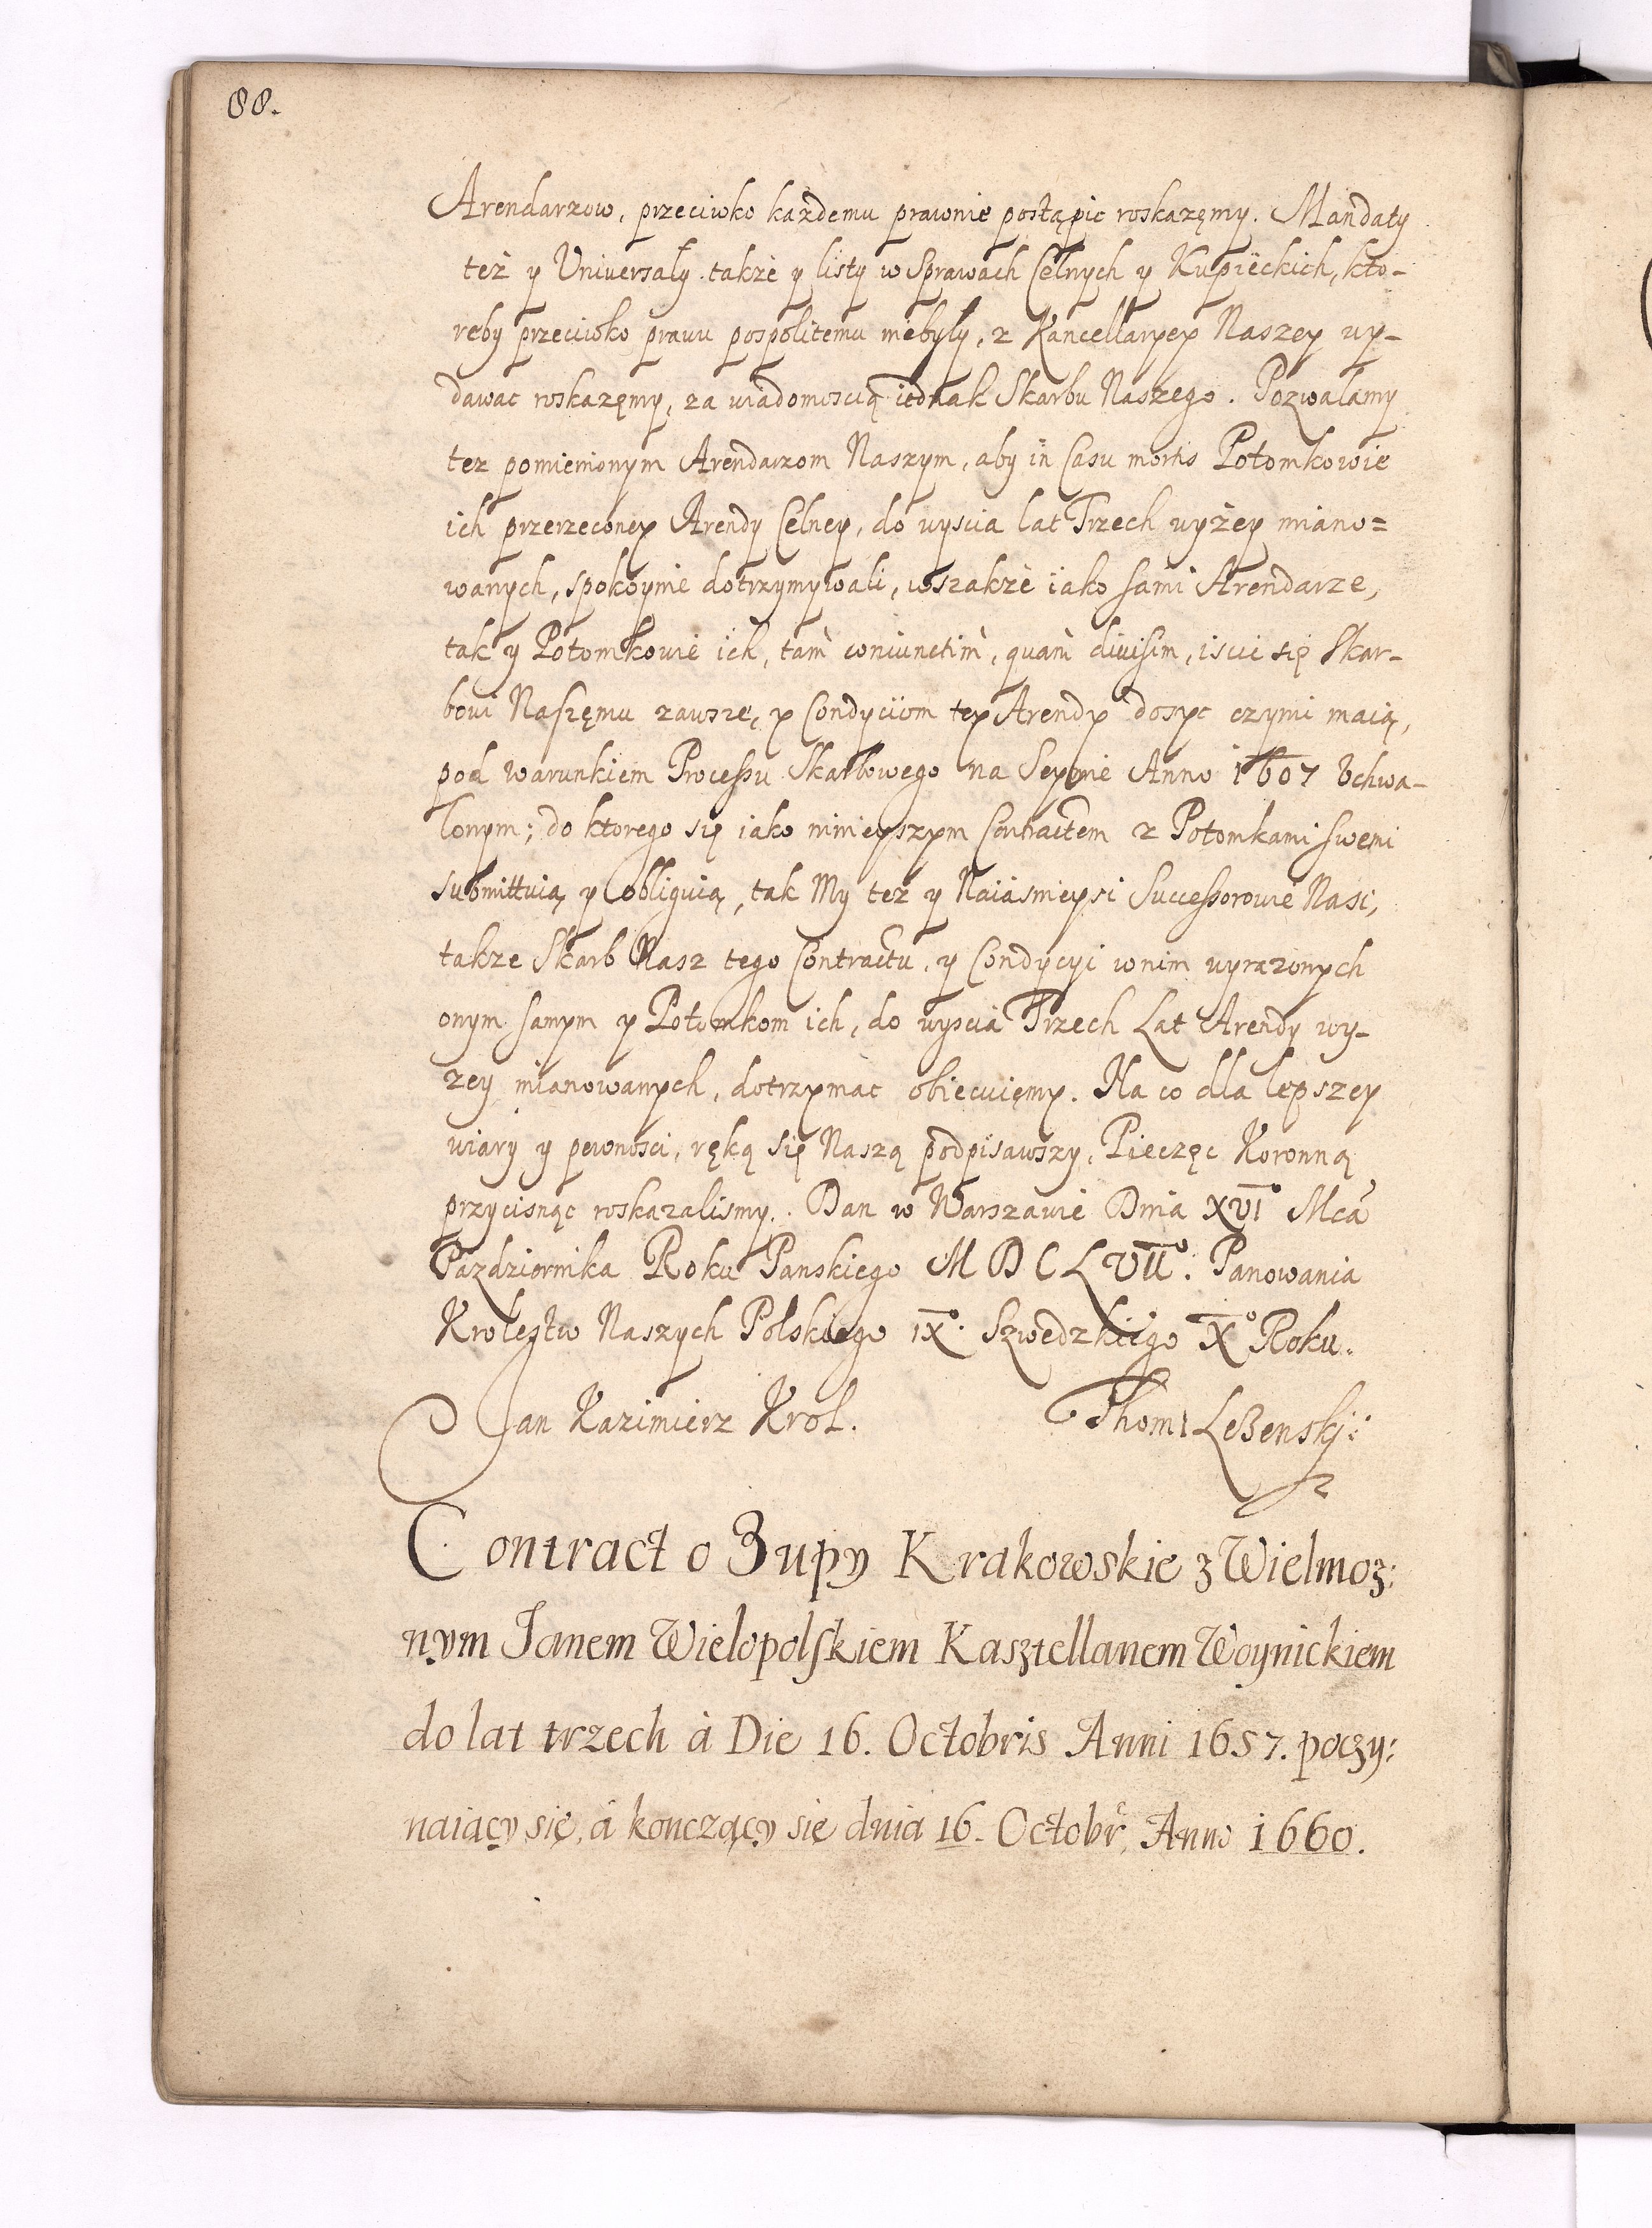 88.
Arendarzow, przeciwko każdemu prawnie postąpic roskazęmy. Mandaty
też y Uniwersaly także y listy w Sprawach Celnych y Kupieckich, kto-
reby przeciwko prawu pospolitemu niebyly, z Kancellaryey Naszey wy-
dawac roskazęmy, za wiadomoscią iednak Skarbu Naszego. Pozwalamy
tez pomienionym Arendarzom Naszym, aby in Casu mortis Potomkowie
ich przerzeconey Arendy Celney, do wyscia lat Trzech wyżey miano=
wanych, spokoynie dotrzymywali, wszakże iako sami Arendarze,
tak y Potomkowie ich, tam̀ coniunctim̀, quam̀ diuisim, iscić się Skar-
bowi Naszęmu zawsze, y Condyciom tey Arendy dosyc czynic maią,
pod warunkiem Processu Skarbowego na Seymie Anno 1607 Vchwa-
lonym; do ktorego się iako ninieyszym Contractem z Potomkami swemi
submittuią y obliguią, tak My też y Naiásnieysi Successorowie Nasi,
takze Skarb Nasz tego Contractu, y Condycyi wnim wyrazonych
onym samym y Potomkom ich, do wyscia Trzech Lat Arendy wy-
zey mianowanych, dotrzymac obiecuięmy. Na co dla lepszey
wiary y pewnosci, ręką się Naszą podpisawszy, Pieczęc Koronną
przycisnąc roskazalismy. Dan w Warszawie Dnia XVI Mcá
Pazdziernika Roku Panskiego MDCLVII°. Panowania
Krolestw Naszych Polskiego IX°. Szwedzkiego X° Roku.
Jan Kazimierz Krol. Thom: Leżenskj:
Contract o Zupy Krakowskie z Wielmoz:
nym Janem Wielopolskiem Kasztellanem Woynickiem
do lat trzech à Die 16. Octobris Anni 1657. poczy:
naiący się, á konczący się dnia 16. Octobr. Anno 1660.